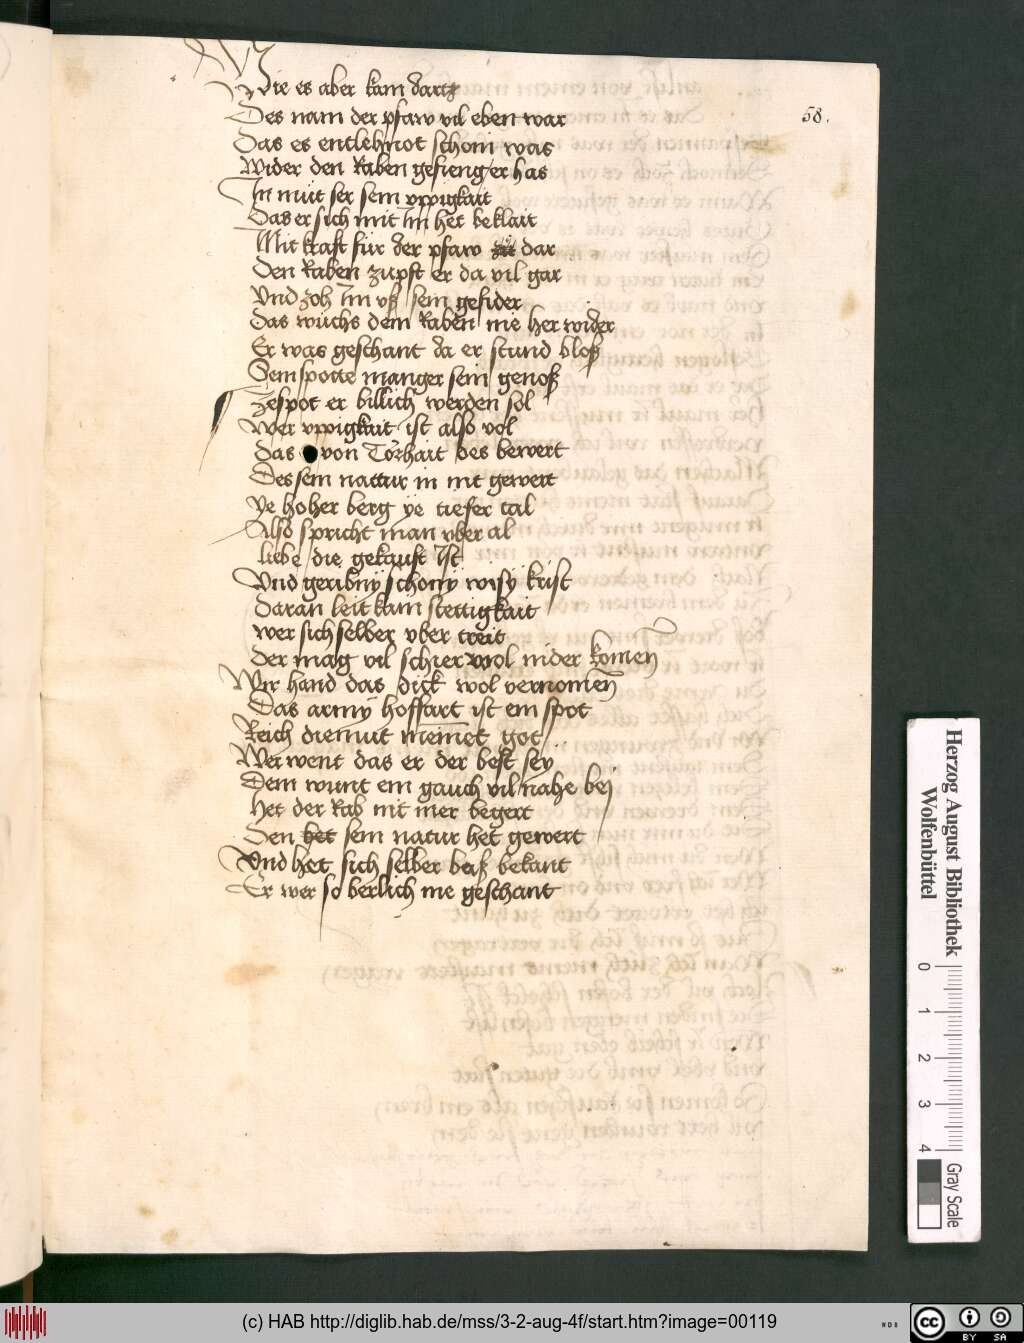 Wie es aber kam dartz
58.
Des nam der pfaw vil eben war
Das es entlehnot schom was
Wider den Raben gefieng er has
In müt ser sein vppigkait
Das er sich mit im het beklait
Mit kraft für der pfaw dar
Den Raben zupft er da vil gar
Vnd zoh im vß sein gefider
Das wüchs dem Raben nie her wider
Er was geschant da er stund bloß
Sein spotte manger sein genoß
Zespot er billich werden sol
Wer vppigkait ist also vol
Das von Torhait des bewert
Des sein nattur in nit gewert
ye hoher berg ye tiefer tal
Also spricht man vber al
liebe die gekauft ist
Vnd geribny schony wisy krist
Daran leit kain stettigkait
wer sich selber vber treit
Der mag vil schier wol nider komen
Wir hand das dick wol vernomen
Das army hoffart ist ein spot
Reich diemut meinet got
Wer went das er der best sey
Dem wunt ein gauch vil nahe bej
Het der Rab nit mer begert
Den het sein natur het gewert
Vnd het sich selber baß bekant
Er wer so berlich nie geschant
Herzog August Bibliothek
Wolfenbüttel
0 1 2 3 4
Gray Scale
(c) HAB http://diglib.hab.de/mss/3-2-aug-4f/start.htm?image=00119
WDB
cc
BY SA